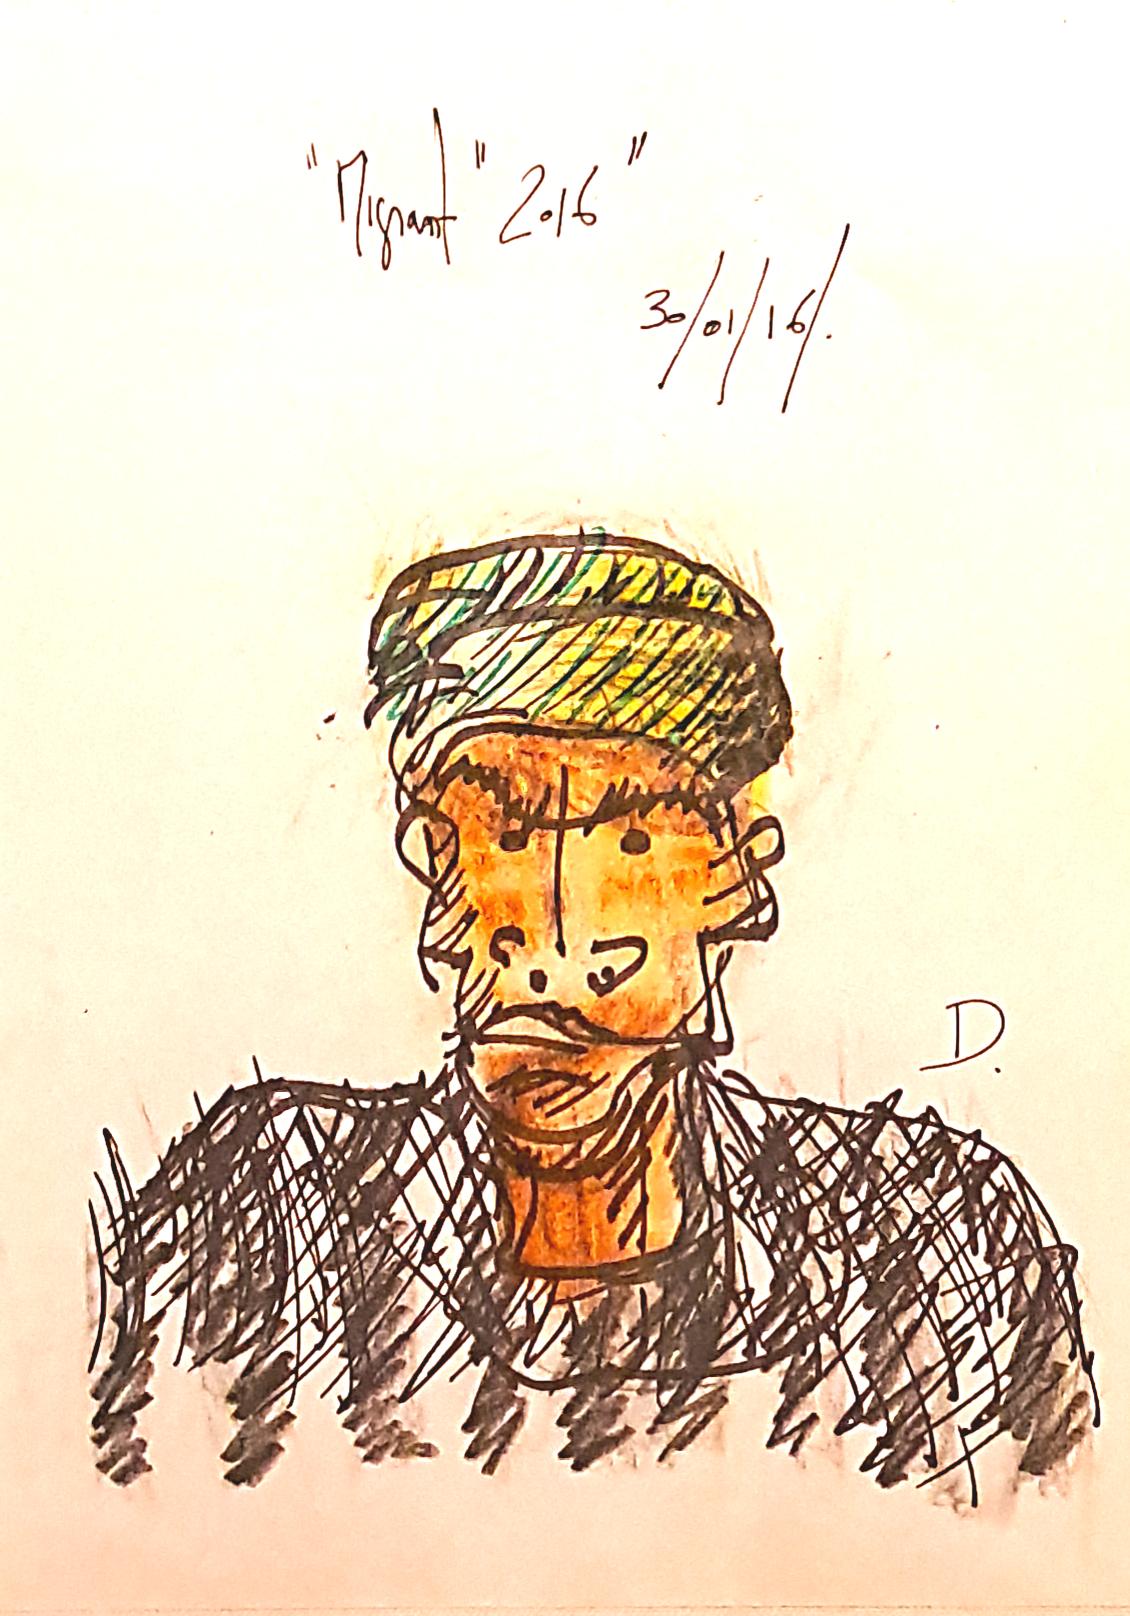 "Migrant" 2016"
30/01/16/.
D.